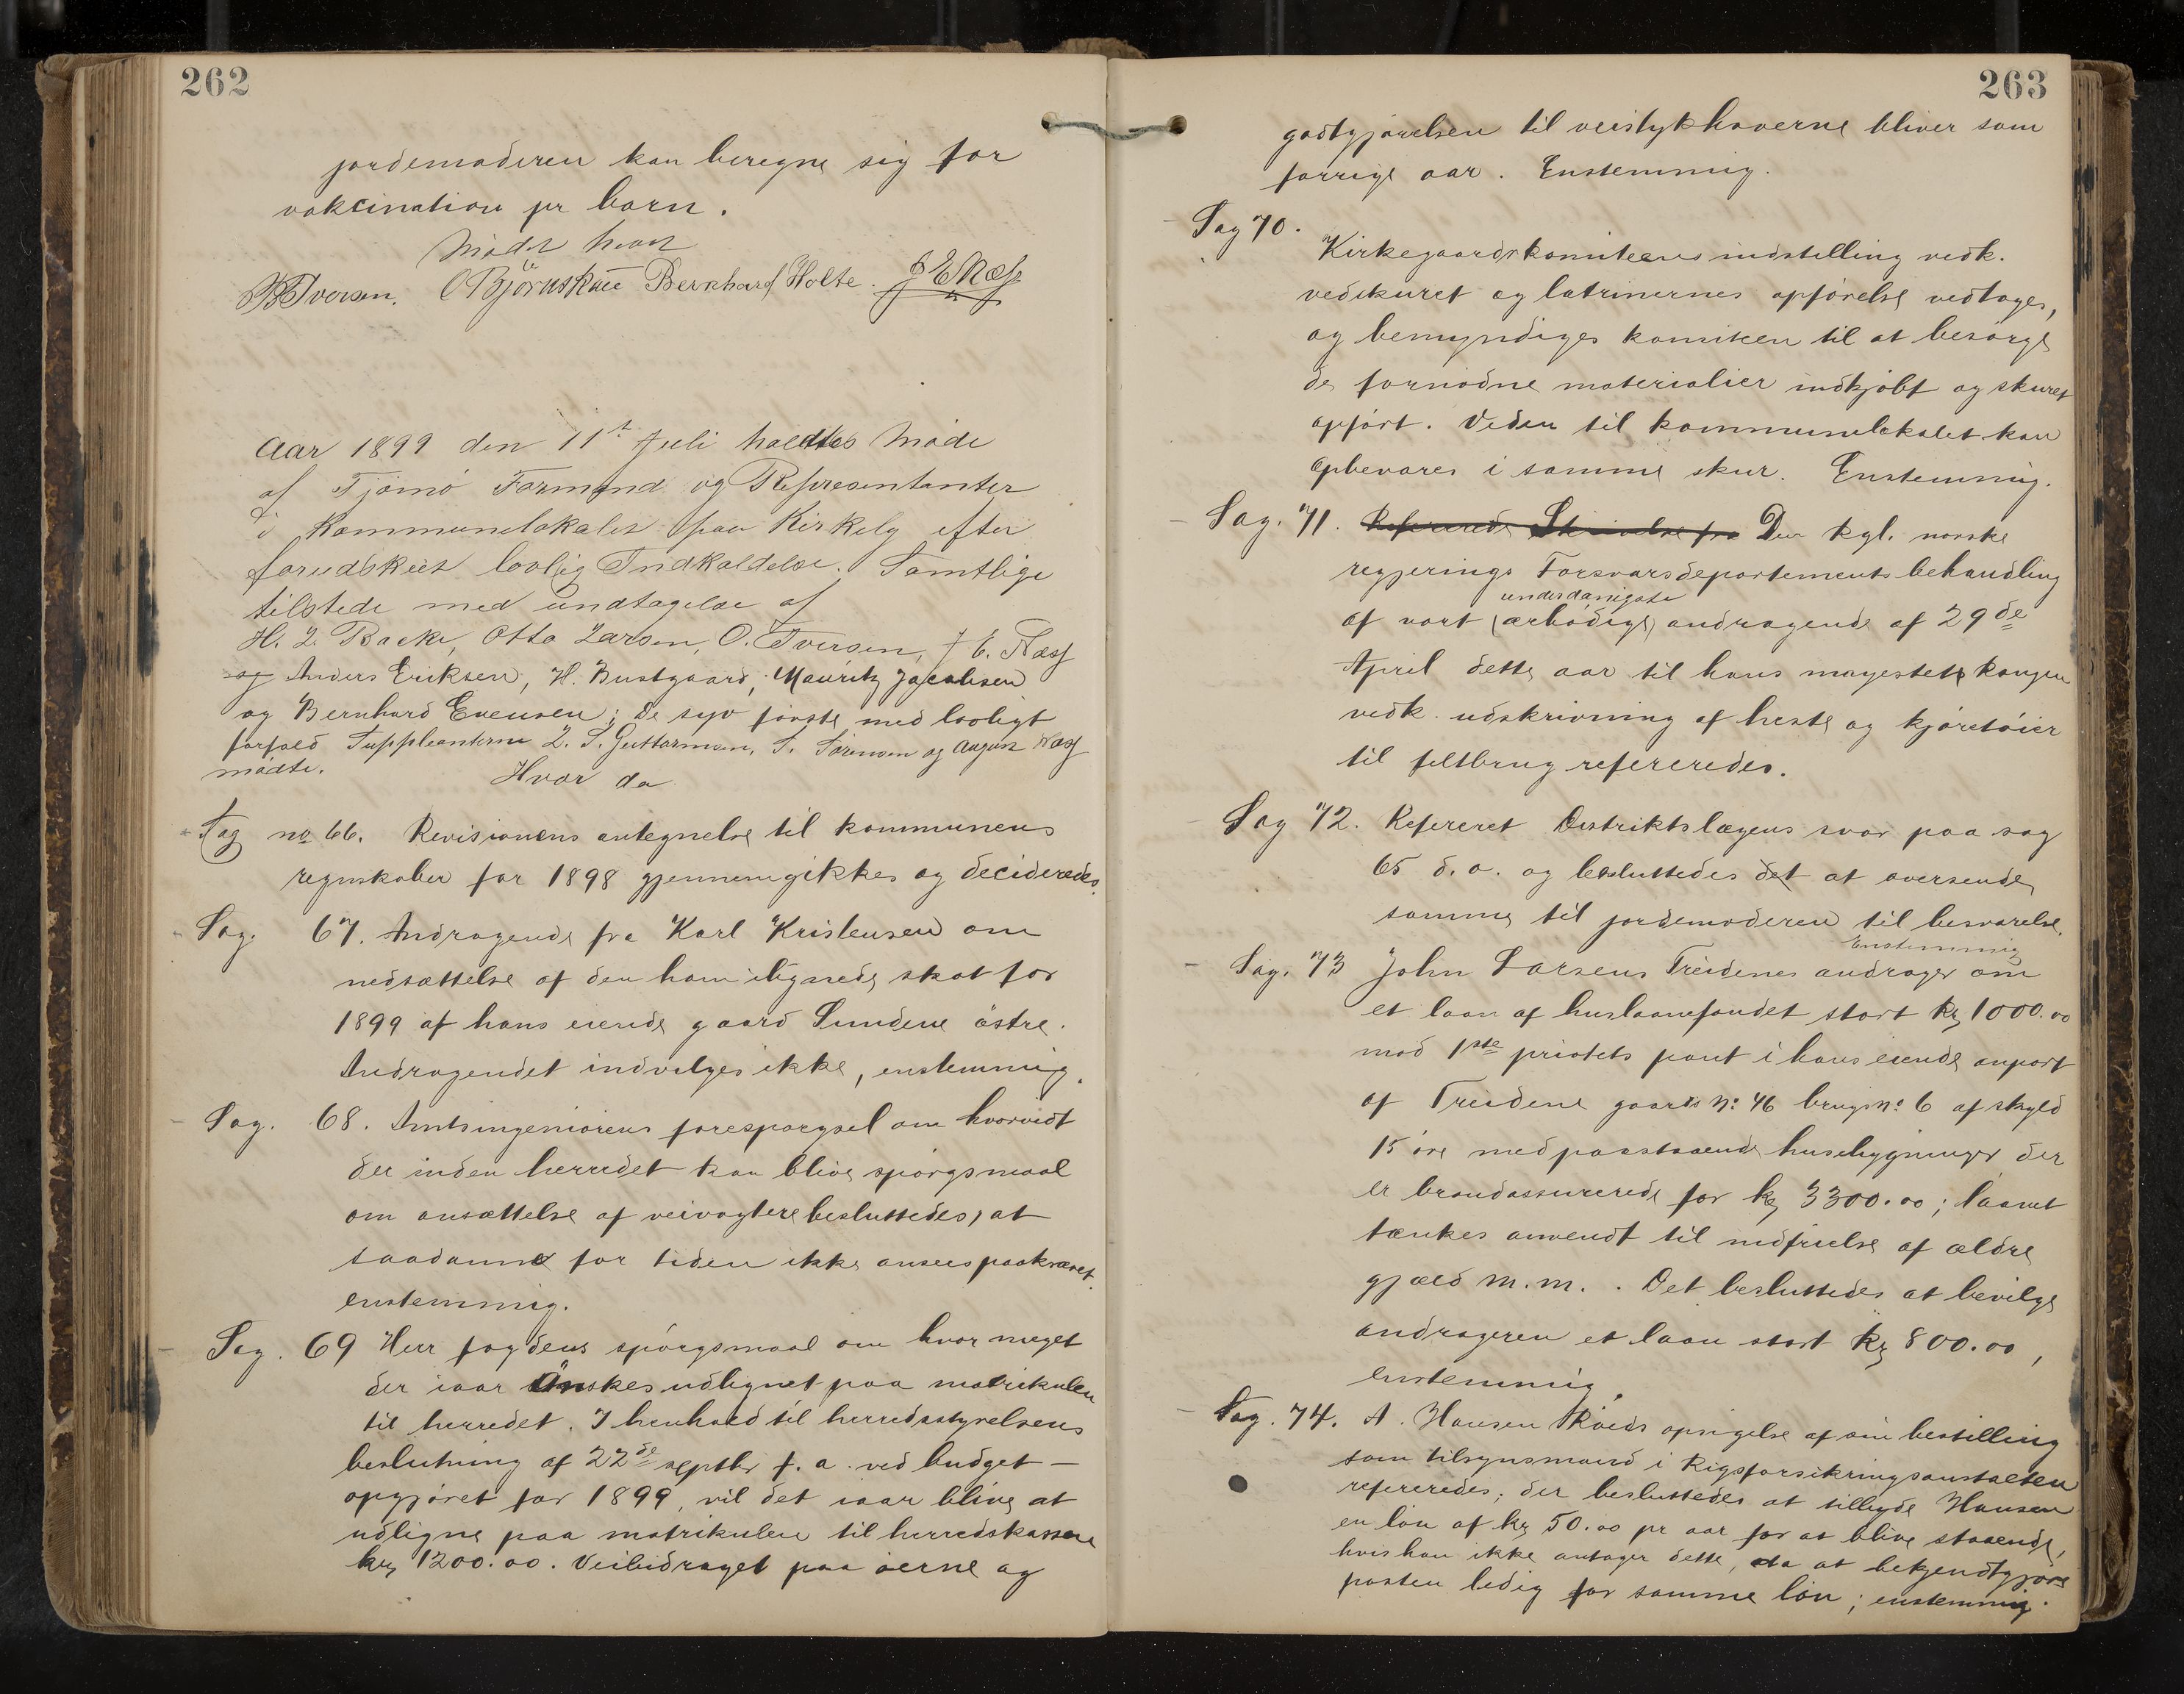 262
jordemoderen kan beregne sig for
vakcination pr barn.
Mödet hævet
Iversen. O Björnskau Bernhard Holte. J E Næss
Aar 1899 den 11te Juli holdtes Möde
af Tjömö Formænd og Repræsentanter
i Kommunelokalet paa Kirkely efter
forudskeet lovlig Indkaldelse. Samtlige
tilstede med undtagelse af
H. L. Bache, Otto Larsen, O. Iversen, J. E. Næss
og Anders Eriksen, H. Bustgaard, Mauritz Jacobsen
og Bernhard Evensen; De syv förste med lovligt
forfald Suppleanterne L. S. Guttorman, S. Sörensen og August Næss
mödte. Hvor da
Sag no 66. Revisionens antegnelse til kommunens
regnskaber for 1898 gjennemgikkes og decideredes.
Sag. 67. Andragende fra Karl Kristensen om
nedsættelse af den ham ilignede skat for
1899 af hans eiende gaard Sundene östre.
Andragendet indvilges ikke, enstemmig.
Sag. 68. Amtsingeniörens forespörgsel om hvorvidt
der inden herredet kan blive spörgsmaal
om ansættelse af veivogtere besluttedes, at
saadanne for tiden ikke ansees paakrævet.
enstemmig.
Sag. 69 Herr fogdens spörgsmaal om hvor meget
der iaar Önskes udlignet paa matrikulen
til herredet. I henhold til herredsstyrelsens
beslutning af 22de septbr f. a. ved budget-
opgjöret for 1899, vil det iaar blive at
udligne paa matrikulen til herredskassen
kr 1200.00. Veibidraget paa öerne og
263
godtgjörelsen til veistykhaverne bliver som
forrige aar. Enstemmig.
Sag 70.
Kirkegaardskomiteens indstilling vedk.
vedskuret og latrinernes opförelse vedtages,
og bemyndiges komiteen til at besörge
de fornödne materialier indkjöbt og skuret
opfört. Veden til kommunelokalet kan
opbevares i samme skur. Enstemmig.
Sag. 71. Refererede Skrivelse fra Den kgl. norske
regjerings Forsvarsdepartements behandling
underdanigste
af vort (ærbödige) andragende af 29de
April dette aar til hans mayestet kongen
vedk. udskrivning af heste og kjöretöier
til feltbrug refereredes.
Sag 72. Refereret Distriktslægens svar paa sag
65 d. a. og besluttedes det at oversende
samme til jordemoderen til besvarelse.
Enstemmig
Sag. 73 John Larsens Treidenes andrager om
et laan af huslaanefondet stort kr 1000.00
mod 1ste priotets pant i hans eiende anpart
af Treidene gaards No 46 brugsno 6 af skyld
15 öre med paastaaende husebygninger der
er brandassurerede for kr 3300.00; laanet
tænkes anvendt til indfrielse af ældre
gjæld m.m.. Det besluttedes at bevilge
andrageren et laan stort kr 800.00,
enstemmig.
Sag. 74. A. Hansen Röeds opsigelse af sin bestilling
som tilsynsmand i Rigsforsikringsanstalten
refereredes; der besluttedes at tilbyde Hansen
en lön af kr 50.00 pr aar for at blive staaende,
hvis han ikke antager dette, da at bekjendtgjöre
posten ledig for samme lön; enstemmig.